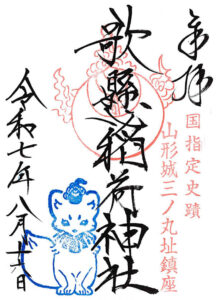 奉拝
国指定史蹟
山形城三ノ丸址鎮座
歌懸稲荷神社
令和七年八月十六日